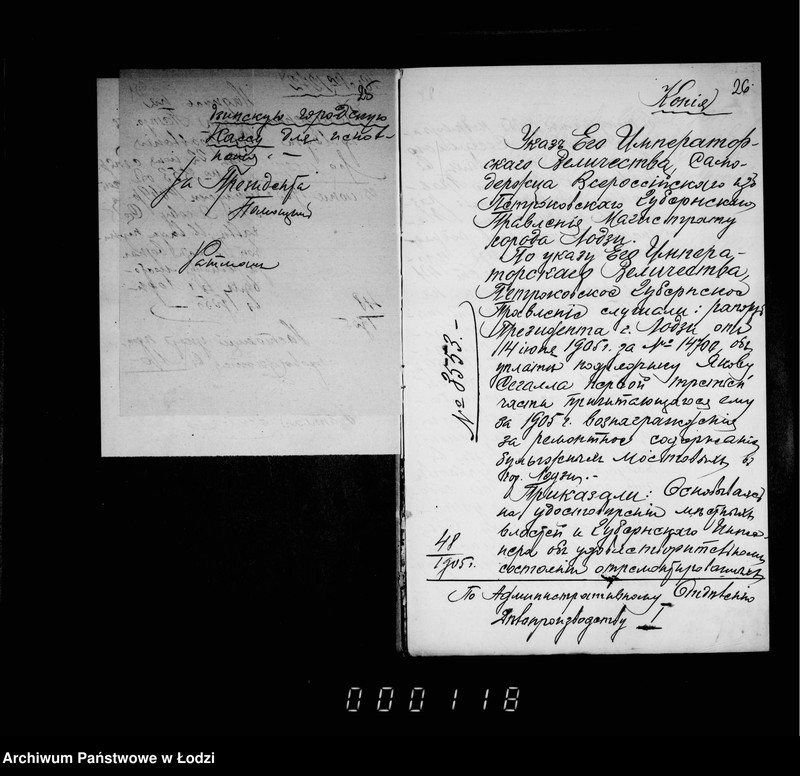 25
городскую
Кассу для испол-
За Президента
Помощник
Ратман
26
Копія
Указъ Его Император-
скаго Величества, Само-
держца Всероссійскаго изъ
Петроковскаго Губернскаго
Правленія Магистрату
города Лодзи.
По указу Его Импера-
торскаго Величества,
Петроковское Губернское
Правленіе слушали: рапортъ
Президента г. Лодзи отъ
14 іюня 1905 г. за № 14700, объ
уплатѣ подрядчику Якову
Сегалла первой третей
части причитающагося ему
за 1905 г. вознагражденія
за ремонтное содержаніе
булыжныхъ мостовыхъ въ
гор. Лодзи.-
№ 3553.-
Приказали: Основываясь
на удостовѣреніи мѣстныхъ
властей и Губернскаго Инже-
нера объ удовлетворительномъ
состояніи отремонтированныхъ
48
1905 г.
По Административному Отдѣленію
Дѣлопроизводству I
000118
Archiwum Państwowe w Łodzi